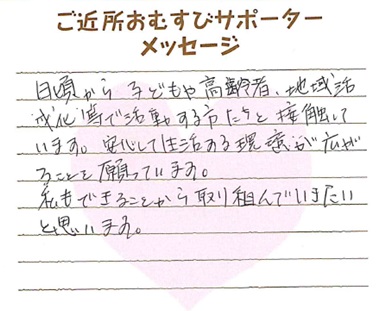 ご近所おむすびサポーター
メッセージ
日頃から子どもや高齢者、地域活
成化等で活動する方たちと接触して
います。安心して生活する環境が広が
ることを願っています。
私もできることから取り組んでいきたい
と思います。